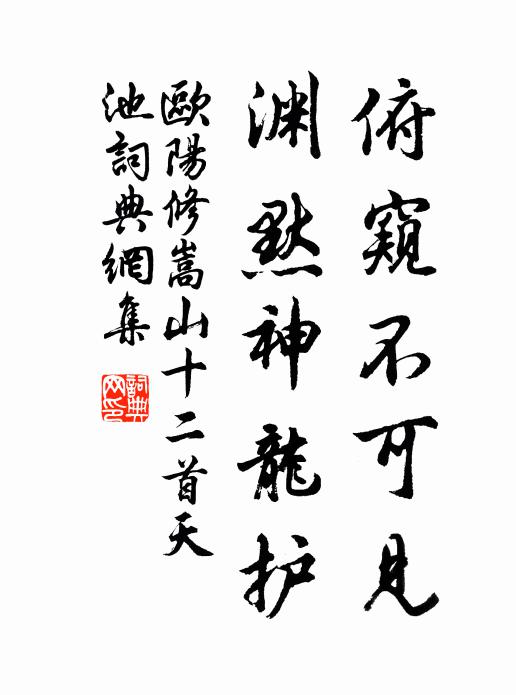 俯窥不可见
渊黙神龍护
歐陽修嵩山十二首天
池詞典網集
詞典
网印